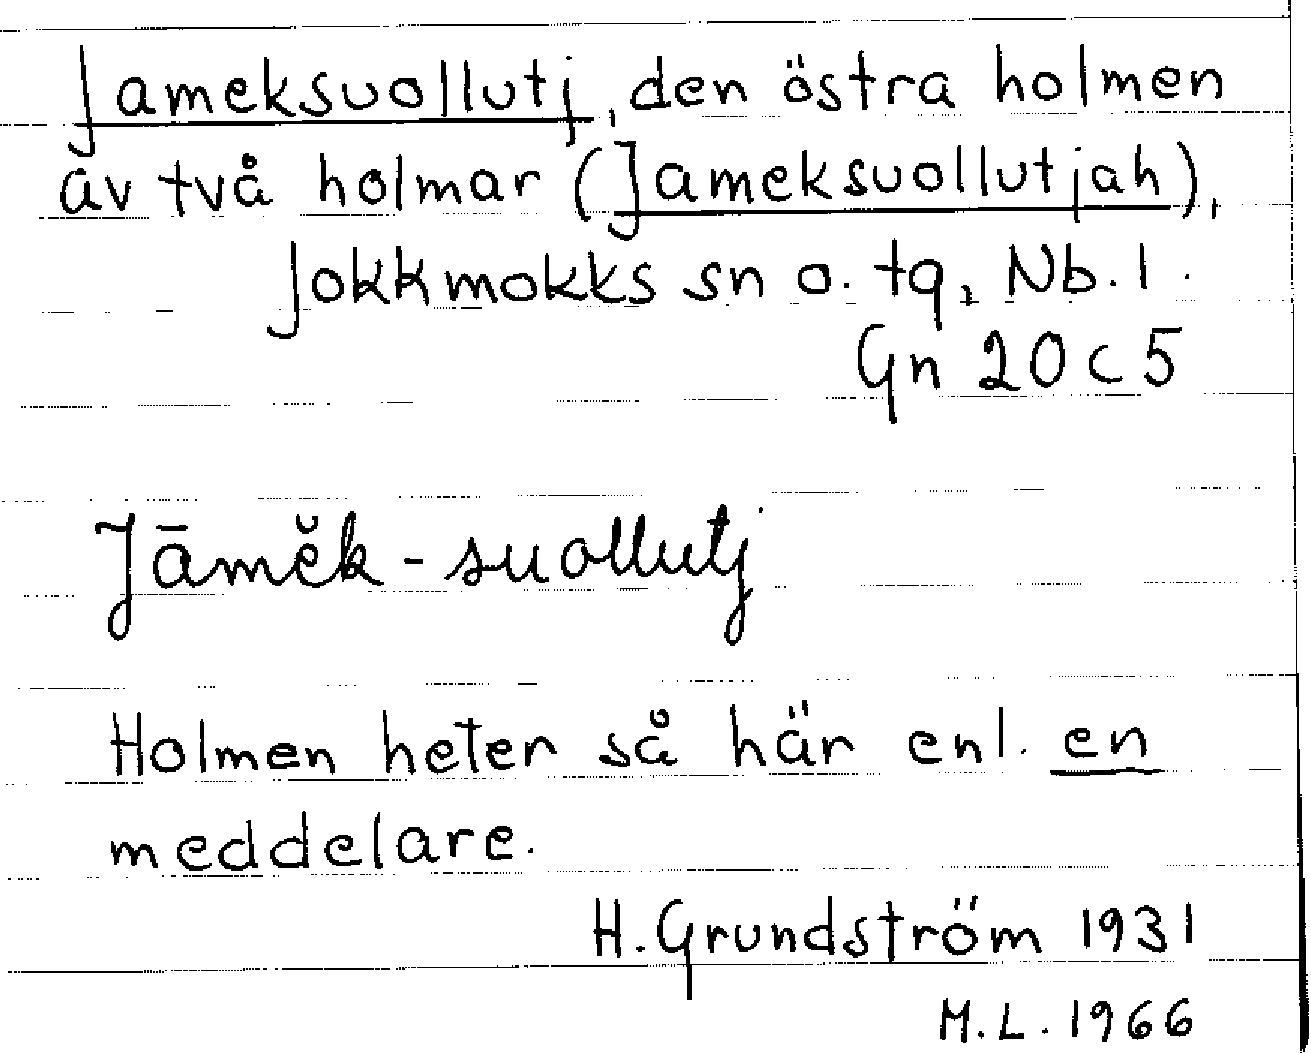 Jameksuollutj, den östra holmen
av två holmar (Jameksuollutjah),
Jokkmokks sn o. tg, Nb. l.
Gn 20 c 5
Jāmĕk-suollutj
Holmen heter så här enl. en
meddelare.
H. Grundström 1931
M.L. 1966